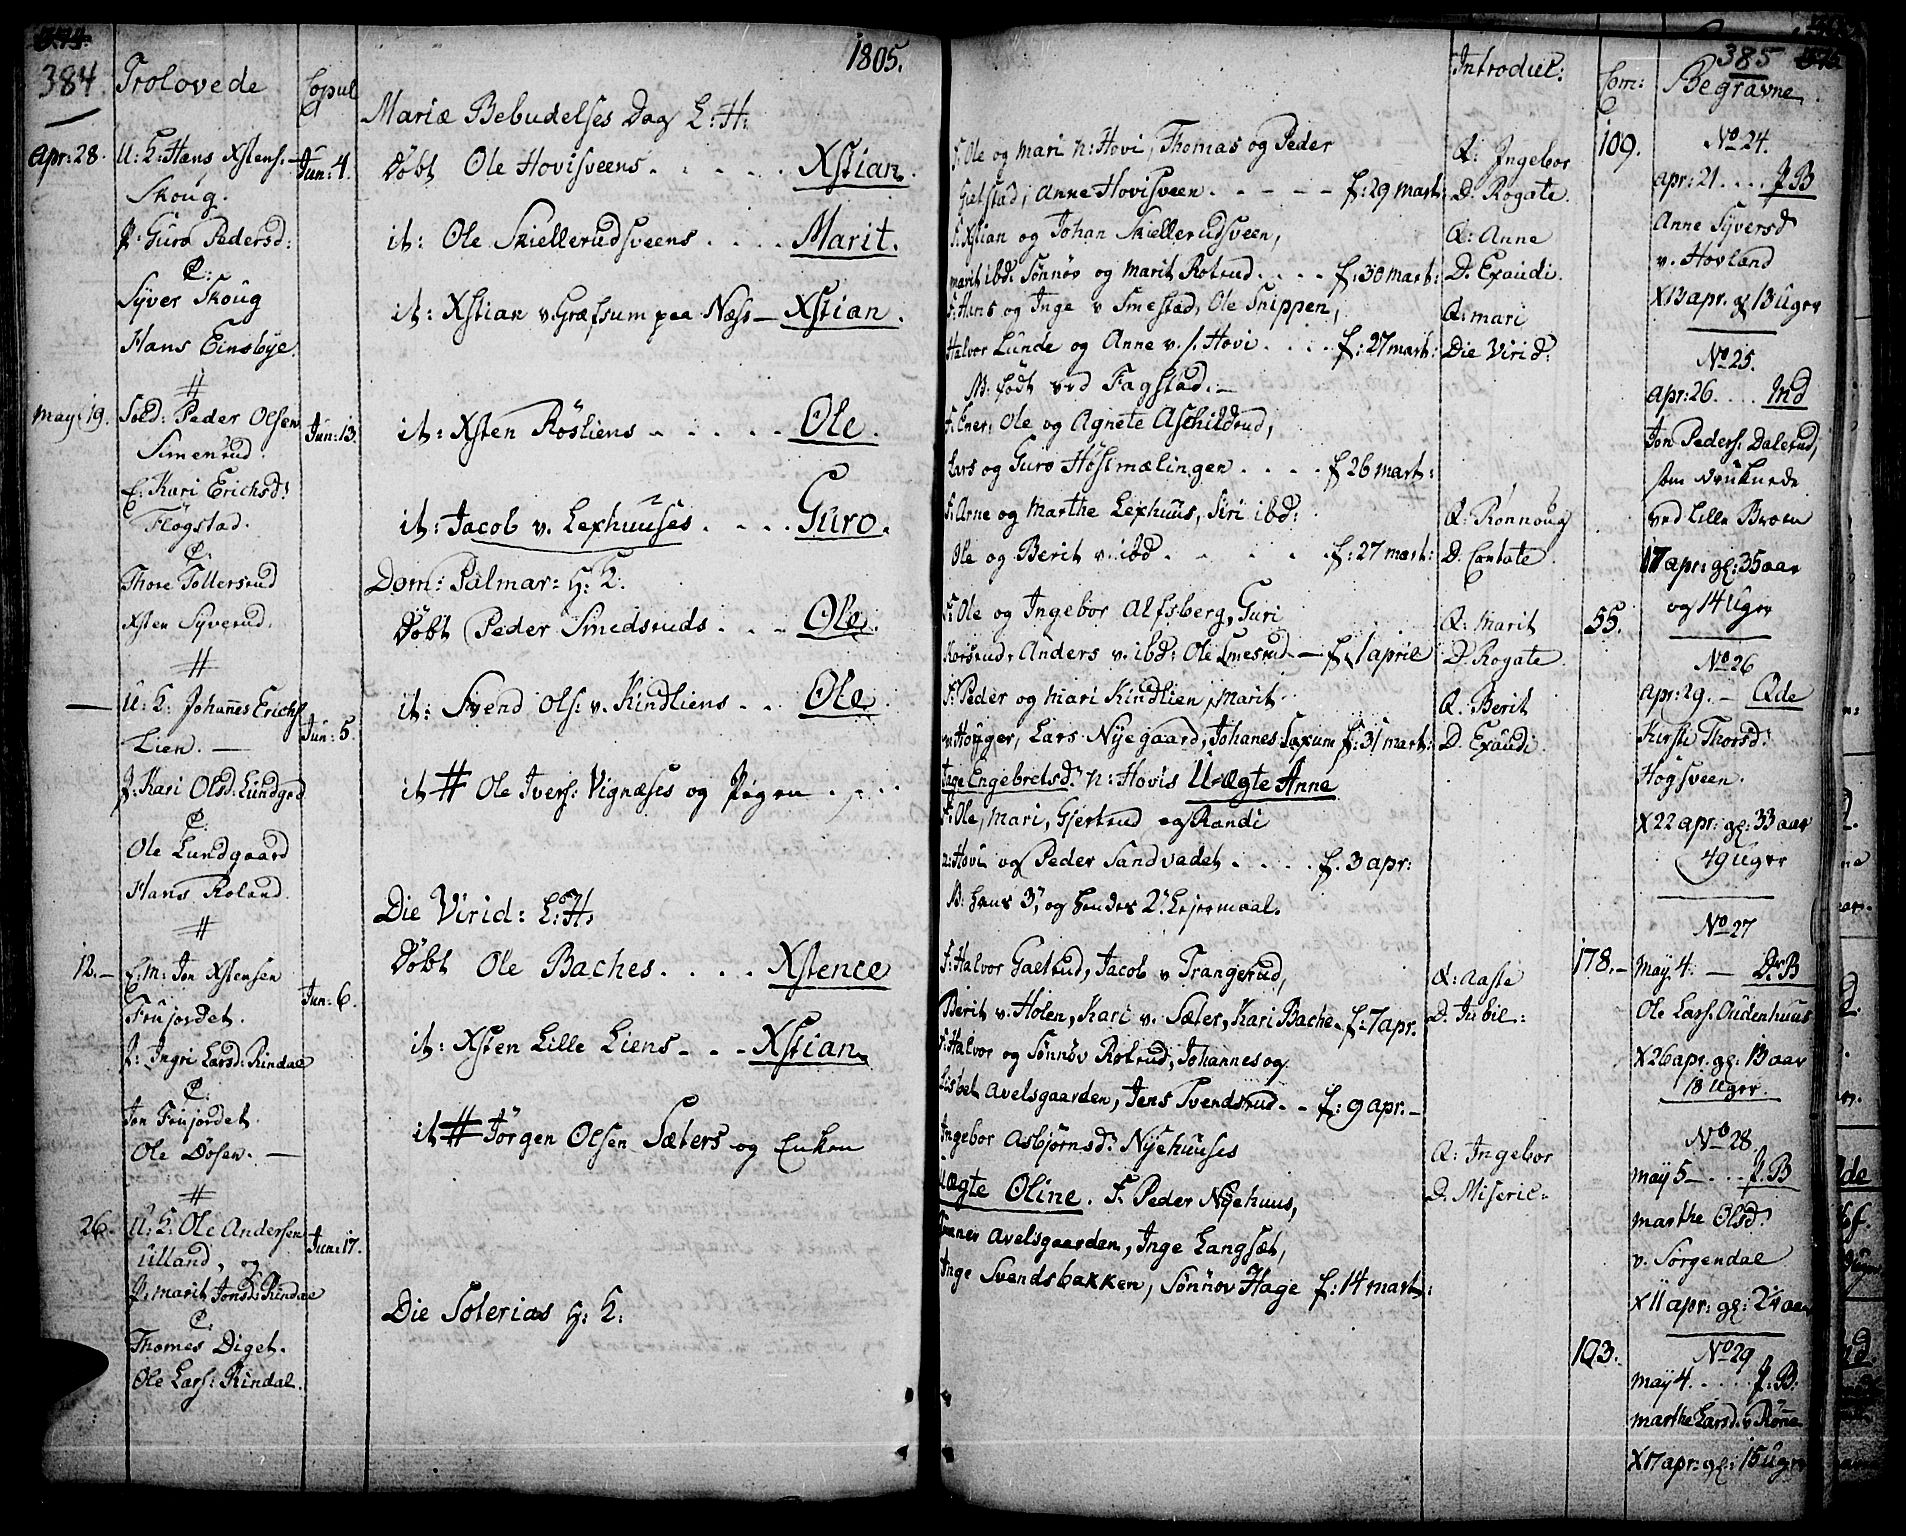 384
Trolovede
Copul
1805.
Apr: 28.
U: K: Hans Xstens.
Jun: 4.
Skoug.
P: Guro Pedersd:
C:
Syver Skoug
Hans Einsbye.
#
May: 19.
Sold: Peder Olsen
Jun: 13.
Simenrud.
E: Kari Erichsd:
Flogstad.
C:
Thore Tollersrud
Xsten Syverud.
#
U: K: Johannes Erichs
Jun: 5.
Lien. —
P: Kari Olsd: Lundgrd
C:
Ole Lundgaard
Hans Roland.
#
12. —
E. M: Jon Xstensen
Jun: 6.
Frujordet.
P: Ingri Larsd: Rindal
C:
Jon Frujordet.
Ole Dosen. —
#
26.
U: K: Ole Andersen
Jun: 17.
Ulland, og
P: Marit Jonsd: Rindal
C:
Thomes Diget.
Ole Lars: Rindal.
Mariæ Bebudelses Dag L: H:
Døbt Ole Hovisveens . . . . . Xstian.
it: Ole Skiellerudsveens . . . . Marit.
it: Xstian v. Græfsum paa Næss — Xstian.
it: Xsten Røsliens . . . . . Ole.
it: Jacob v. Lexhuuses . . . . Guro.
Dom: Palmar: H: K:
Døbt Peder Smedsruds . . . Ole.
it: Svend Ols: v. Kindliens . . Ole
it # Ole Ivers: Vignæses og Pigen . . . .
Die Virid: L: H:
Døbt Ole Baches. . . . . Xstence
it: Xsten Lille Liens . . . Xstian
it # Jørgen Olsen Sæters og Enken
Die Soterias H: K:
385
Introduc:
Com:
Begravne
F: Ole og Mari n: Hovi, Thomas og Peder
Gielstad, Anne Hovisveen . . . . . f: 29 mart:
Q: Ingebor
D. Rogate.
109.
F: Xstian og Johan Skiellerudsveen,
Marit ibd: Sønnøv og Marit Rotrud . . . . f: 30 mart:
Q: Anne
D. Exaudi.
F: Hans og Inge v Smestad, Ole Snippen,
Halvor Lunde og Anne v. s: Hovi . . . . f: 27 mart:
Q: Mari
Die Virid:
NB. født ved Fagstad. —
F: Ener: Ole og Agnete Aschildrud,
Lars og Guro Høstmælingen . . . . f 26 mart:
F: Arne og Marthe Lexhuus, Siri ibd:
Ole og Berit v: ibd . . . . . . f: 27 mart:
Q: Ronnoug
D. Cantate.
F: Ole og Ingebor Alfsberg, Guri
Korsrud, Anders v. ibd: Ole Smesrud — f: 1 april
Q: Marit
D. Rogate.
55.
F: Peder og Mari Kindlien, Marit
v: Houger, Lars Nyegaard, Johanes Saxum f: 31 mart:
Q. Berit
D. Exaudi.
Inge Engebretsd: n: Hovis U-ægte Anne
F: Ole, Mari, Gjertrud og Randi
n: Hovi og Peder Sandvadet . . . . f. 3 apr:
NB: hans 3, og hendes 2. Lejermaal.
F: Halvor Gaelrud, Jacob v Trangsrud,
Berit v. Holen, Kari v. Sæter, Kari Bache . f: 7 apr.
Q: Aaste
D. Jubil:
178. —
F: Halvor og Sønnøv Rotrud, Johannes og
Lisbet Avelsgaarden, Jens Svendsrud . . f: 9 apr. —
Ingebor Asbjørnsd: Nyehuuses
Uægte Oline. F: Peder Nyehuus,
Q: Ingebor
D. Miseric:
Avelsgaarden, Inge Langsæt,
Inge Svendsbakken, Sønnøv Hage f: 14 mart:
103.
No 24.
Apr: 21 . . . . P B
Anne Syversd
v. Hovland
X 13 apr. gl 13 Uger
No 25.
Apr: 26. . . . Md
Jon Peders: Dalerud,
som druknede
ved Lille Broen
17 apr: gl: 35 aar
og 14 Uger
No 26
Apr: 29. — Qde
Kirsti Thorsd:
Hogsveen.
X 22 apr: gl: 33 aar
49 Uger
No 27
May 4. — Dr B
Ole Lars: Oudenhuus
X 26 apr. gl: 13 aar
18 Uger.
No 28
May 5 — . . . P. B
Marthe Olsd:
v. Sorgendal
X 11 apr: gl: 2 1/4 aar
No 29
May 4. . . . . P. B.
Marthe Larsd: v Rønne
X 17 apr: gl: 15 Uger